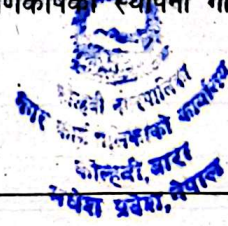 स्थापना
कोल्हवी नगरपालिका
नगर कार्यपालिकाको कार्यालय
कोल्हवी, बारा
मधेश प्रदेश, नेपाल